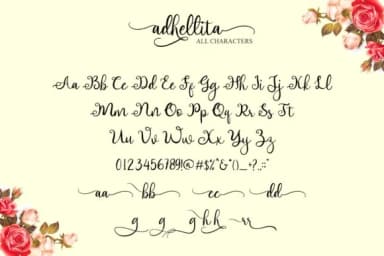 adhellita
ALL CHARACTERS
Aa Bb Cc Dd Ee Ff Gg Hh Ii Jj Kk Ll
Mm Nn Oo Pp Qq Rr Ss Tt
Uu Vv Ww Xx Yy Zz
0123456789!@#$%^&*()_+?.,:;"
aa bb cc dd
g g g h h rr